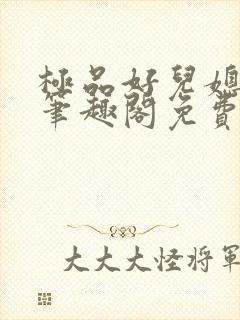 極品好兒媳
筆趣閣免費
大大大怪將軍